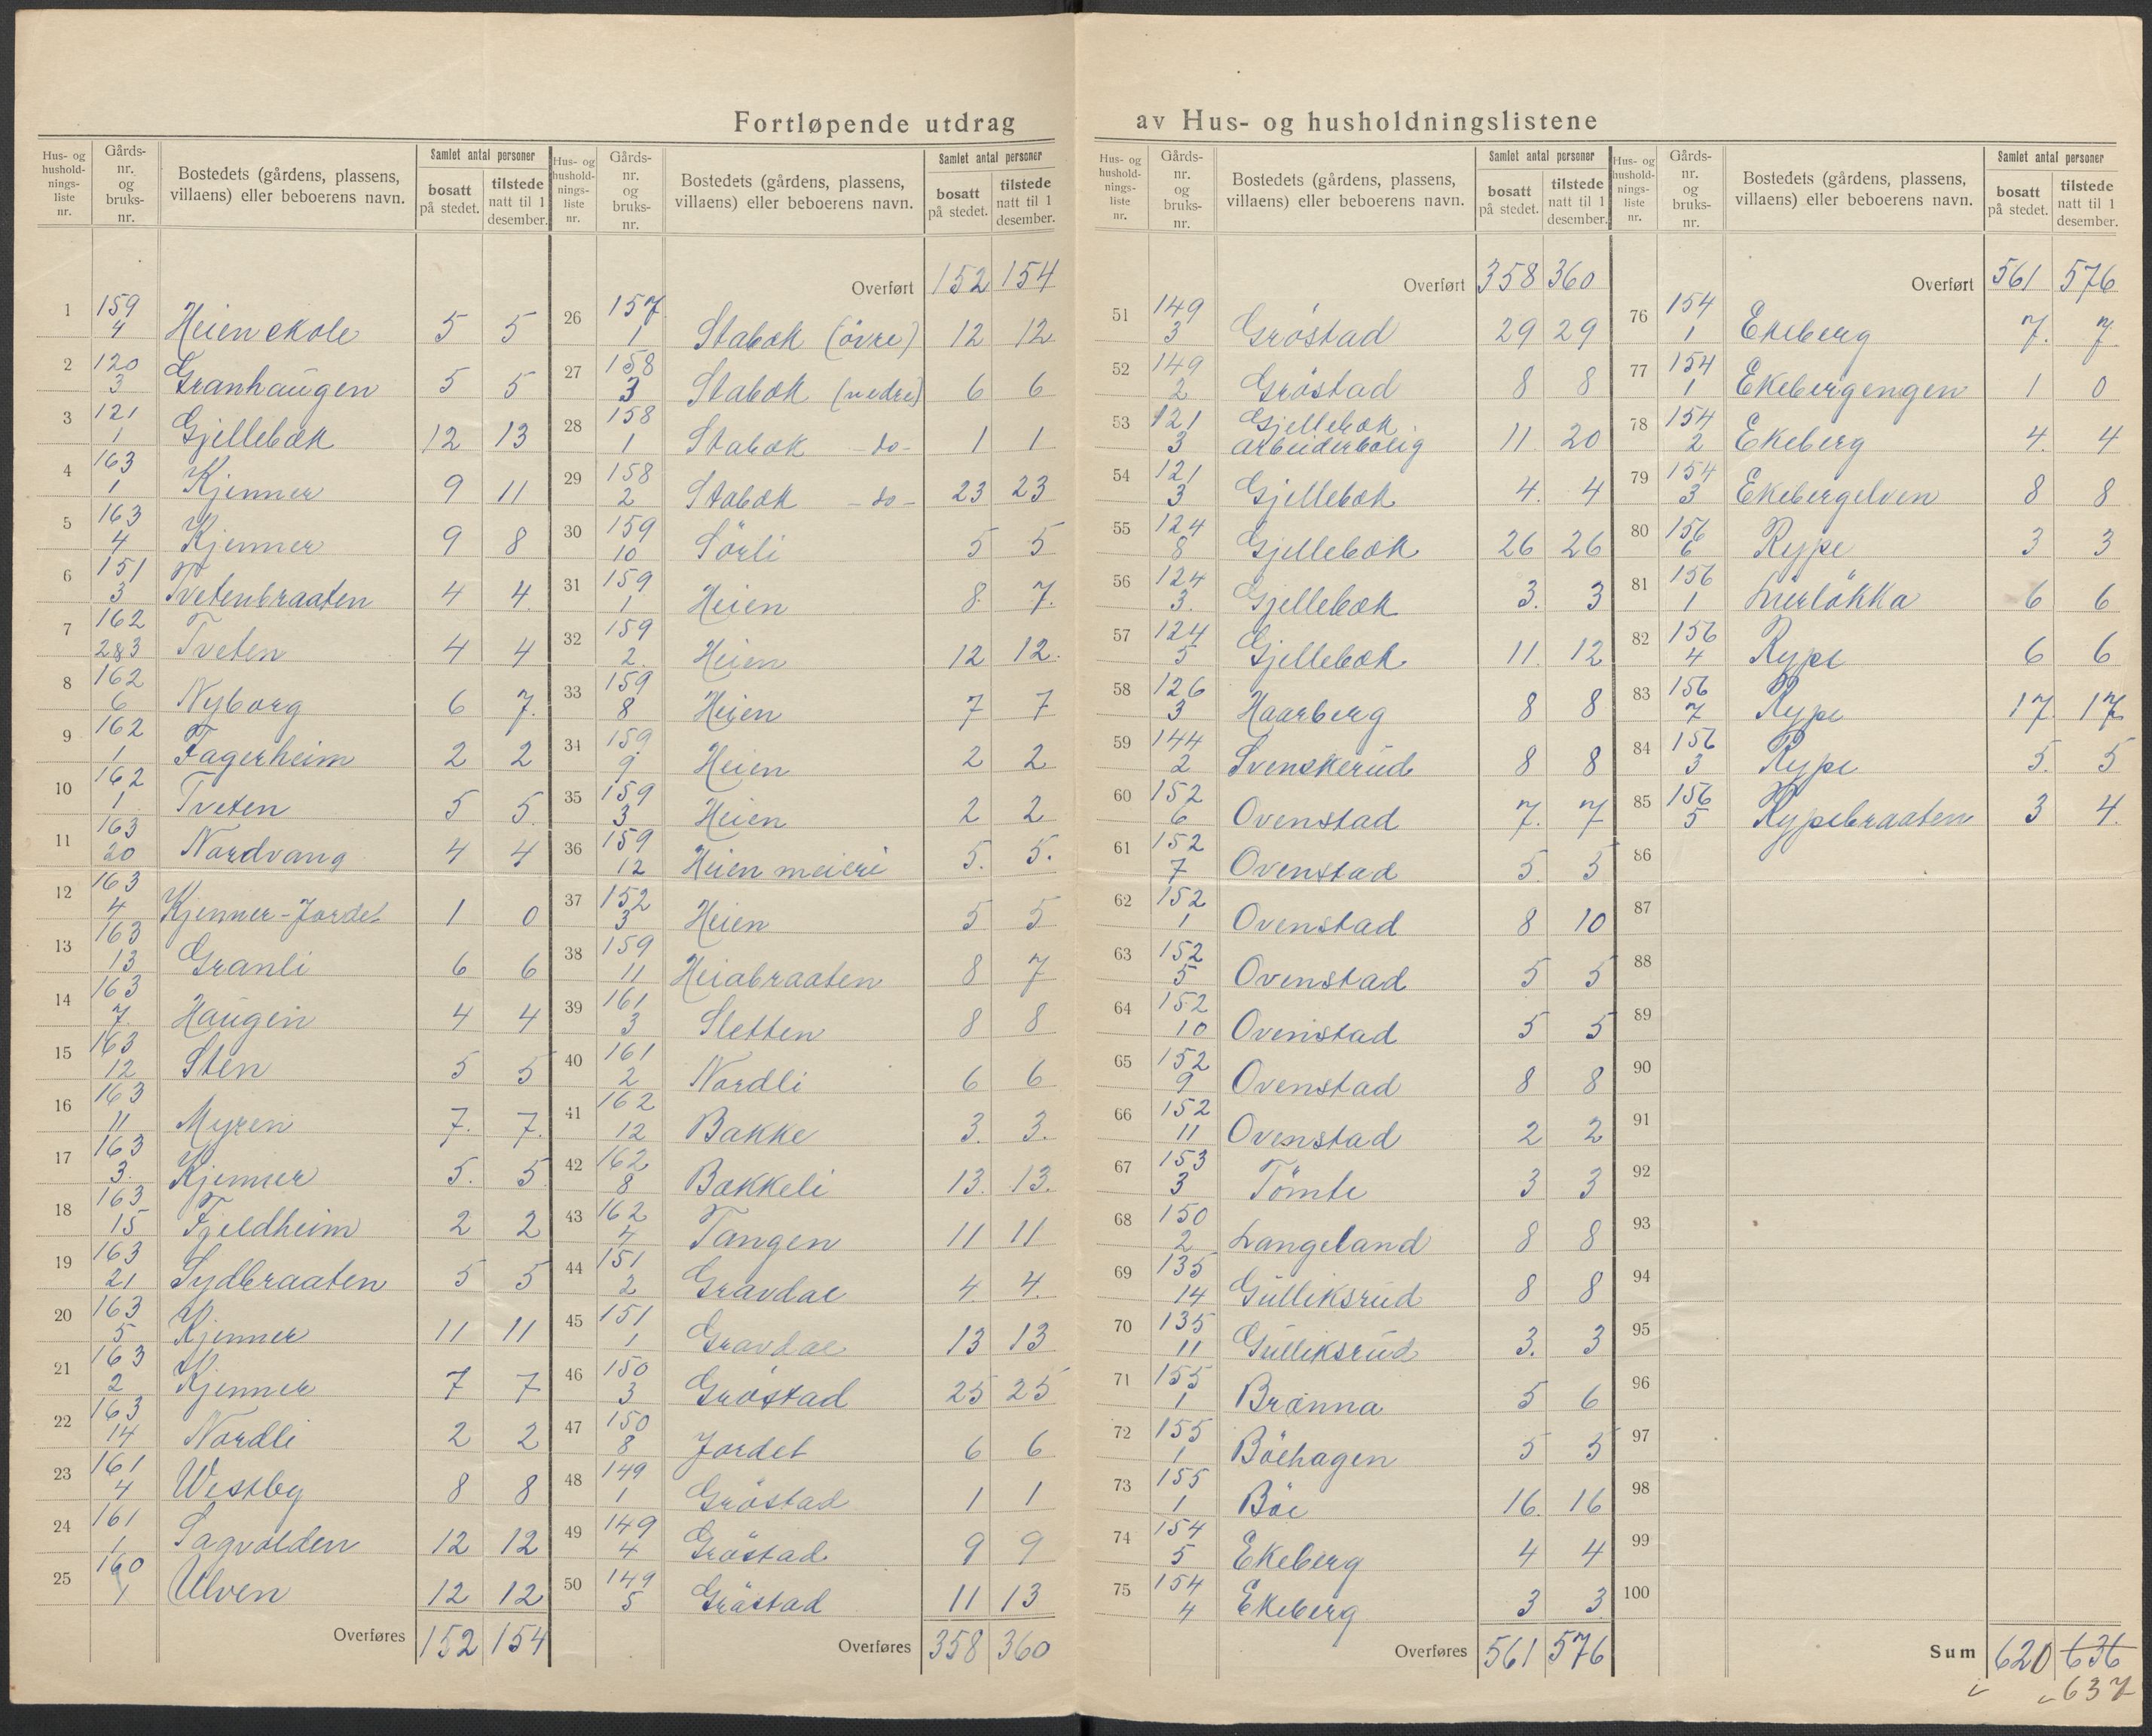 Fortløpende utdrag av Hus- og husholdningslistene
Hus- og hushold-nings-liste nr. | Gårds-nr. og bruks-nr. | Bostedets (gårdens, plassens, villaens) eller beboerens navn. | Samlet antal personer bosatt på stedet. | tilstede natt til 1 desember.
1 159 4 Heien skole 5 5
2 120 3 Granhaugen 5 5
3 121 1 Gjellebæk 12 13
4 163 1 Kjenner 9 11
5 163 4 Kjenner 9 8
6 151 3 Tvetenbraaten 4 4
7 162 2&3 Tveten 4 4
8 162 6 Nyborg 6 7
9 162 1 Fagerheim 2 2
10 162 1 Tveten 5 5
11 163 20 Nordvang 4 4
12 163 4 Kjenner-Jordet 1 0
13 163 13 Granli 6 6
14 163 7 Haugen 4 4
15 163 12 Sten 5 5
16 163 11 Myren 7 7
17 163 3 Kjenner 5 5
18 163 15 Fjeldheim 2 2
19 163 21 Sydbraaten 5 5
20 163 5 Kjenner 11 11
21 163 2 Kjenner 7 7
22 163 14 Nordli 2 2
23 161 4 Westby 8 8
24 161 1 Sagvolden 12 12
25 160 1 Ulven 12 12
Overføres 152 154
Hus- og hushold-nings-liste nr. | Gårds-nr. og bruks-nr. | Bostedets (gårdens, plassens, villaens) eller beboerens navn. | Samlet antal personer bosatt på stedet. | tilstede natt til 1 desember.
Overført 152 154
26 157 1 Stabæk (övre) 12 12
27 158 3 Stabæk (nedre) 6 6
28 158 1 Stabæk -do- 1 1
29 158 2 Stabæk -do- 23 23
30 159 10 Sörli 5 5
31 159 1 Heien 8 7
32 159 2 Heien 12 12
33 159 8 Heien 7 7
34 159 9 Heien 2 2
35 159 3 Heien 2 2
36 159 12 Heien meieri 5 5
37 152 3 Heien 5 5
38 159 11 Heiabraaten 8 7
39 161 3 Sletten 8 8
40 161 2 Nordli 6 6
41 162 12 Bakke 3 3
42 162 8 Bakkeli 13 13
43 162 4 Tangen 11 11
44 151 2 Gravdal 4 4
45 151 1 Gravdal 13 13
46 150 3 Gröstad 25 25
47 150 8 Jordet 6 6
48 149 1 Gröstad 1 1
49 149 4 Gröstad 9 9
50 149 5 Gröstad 11 13
Overføres 358 360
Hus- og hushold-nings-liste nr. | Gårds-nr. og bruks-nr. | Bostedets (gårdens, plassens, villaens) eller beboerens navn. | Samlet antal personer bosatt på stedet. | tilstede natt til 1 desember.
Overført 358 360
51 149 3 Gröstad 29 29
52 149 2 Gröstad 8 8
53 121 3 Gjellebæk arbeiderbolig 11 20
54 121 3 Gjellebæk 4 4
55 124 8 Gjellebæk 26 26
56 124 3 Gjellebæk 3 3
57 124 5 Gjellebæk 11 12
58 126 3 Haarberg 8 8
59 144 2 Svenskerud 8 8
60 152 6 Ovenstad 7 7
61 152 7 Ovenstad 5 5
62 152 1 Ovenstad 8 10
63 152 5 Ovenstad 5 5
64 152 10 Ovenstad 5 5
65 152 9 Ovenstad 8 8
66 152 11 Ovenstad 2 2
67 153 3 Tömte 3 3
68 150 2 Langeland 8 8
69 135 14 Gulliksrud 8 8
70 135 11 Gulliksrud 3 3
71 155 1 Brænna 5 6
72 155 1 Böehagen 5 5
73 155 1 Böe 16 16
74 154 5 Ekeberg 4 4
75 154 4 Ekeberg 3 3
Overføres 561 576
Hus- og hushold-nings-liste nr. | Gårds-nr. og bruks-nr. | Bostedets (gårdens, plassens, villaens) eller beboerens navn. | Samlet antal personer bosatt på stedet. | tilstede natt til 1 desember.
Overført 561 576
76 154 1 Ekeberg 7 7
77 154 1 Ekebergengen 1 0
78 154 2 Ekeberg 4 4
79 154 3 Ekebergelven 8 8
80 156 6 Rype 3 3
81 156 1 Lierløkka 6 6
82 156 4 Rype 6 6
83 156 7 Rype 17 17
84 156 3 Rype 5 5
85 156 5 Rypebraaten 3 4
86
87
88
89
90
91
92
93
94
95
96
97
98
99
100
Sum 620 636
637